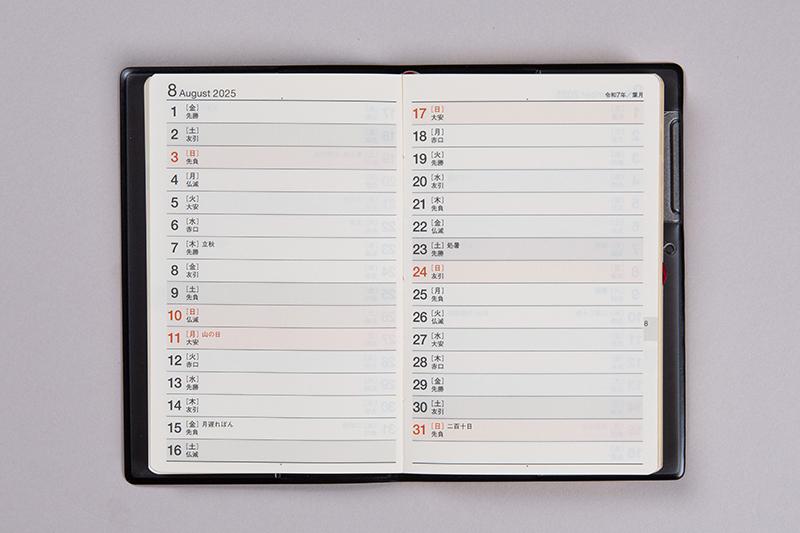 8 August 2025
1 [金]
先勝
2 [土]
友引
3 [日]
先負
4 [月]
仏滅
5 [火]
大安
6 [水]
赤口
7 [木] 立秋
先勝
8 [金]
友引
9 [土]
先負
10 [日]
仏滅
11 [月] 山の日
大安
12 [火]
赤口
13 [水]
先勝
14 [木]
友引
15 [金] 月遅れぼん
先負
16 [土]
仏滅
令和7年/葉月
17 [日]
大安
18 [月]
赤口
19 [火]
先勝
20 [水]
友引
21 [木]
先負
22 [金]
仏滅
23 [土] 処暑
先勝
24 [日]
友引
25 [月]
先負
26 [火]
仏滅
27 [水]
大安
28 [木]
赤口
29 [金]
先勝
30 [土]
友引
31 [日] 二百十日
先負
8